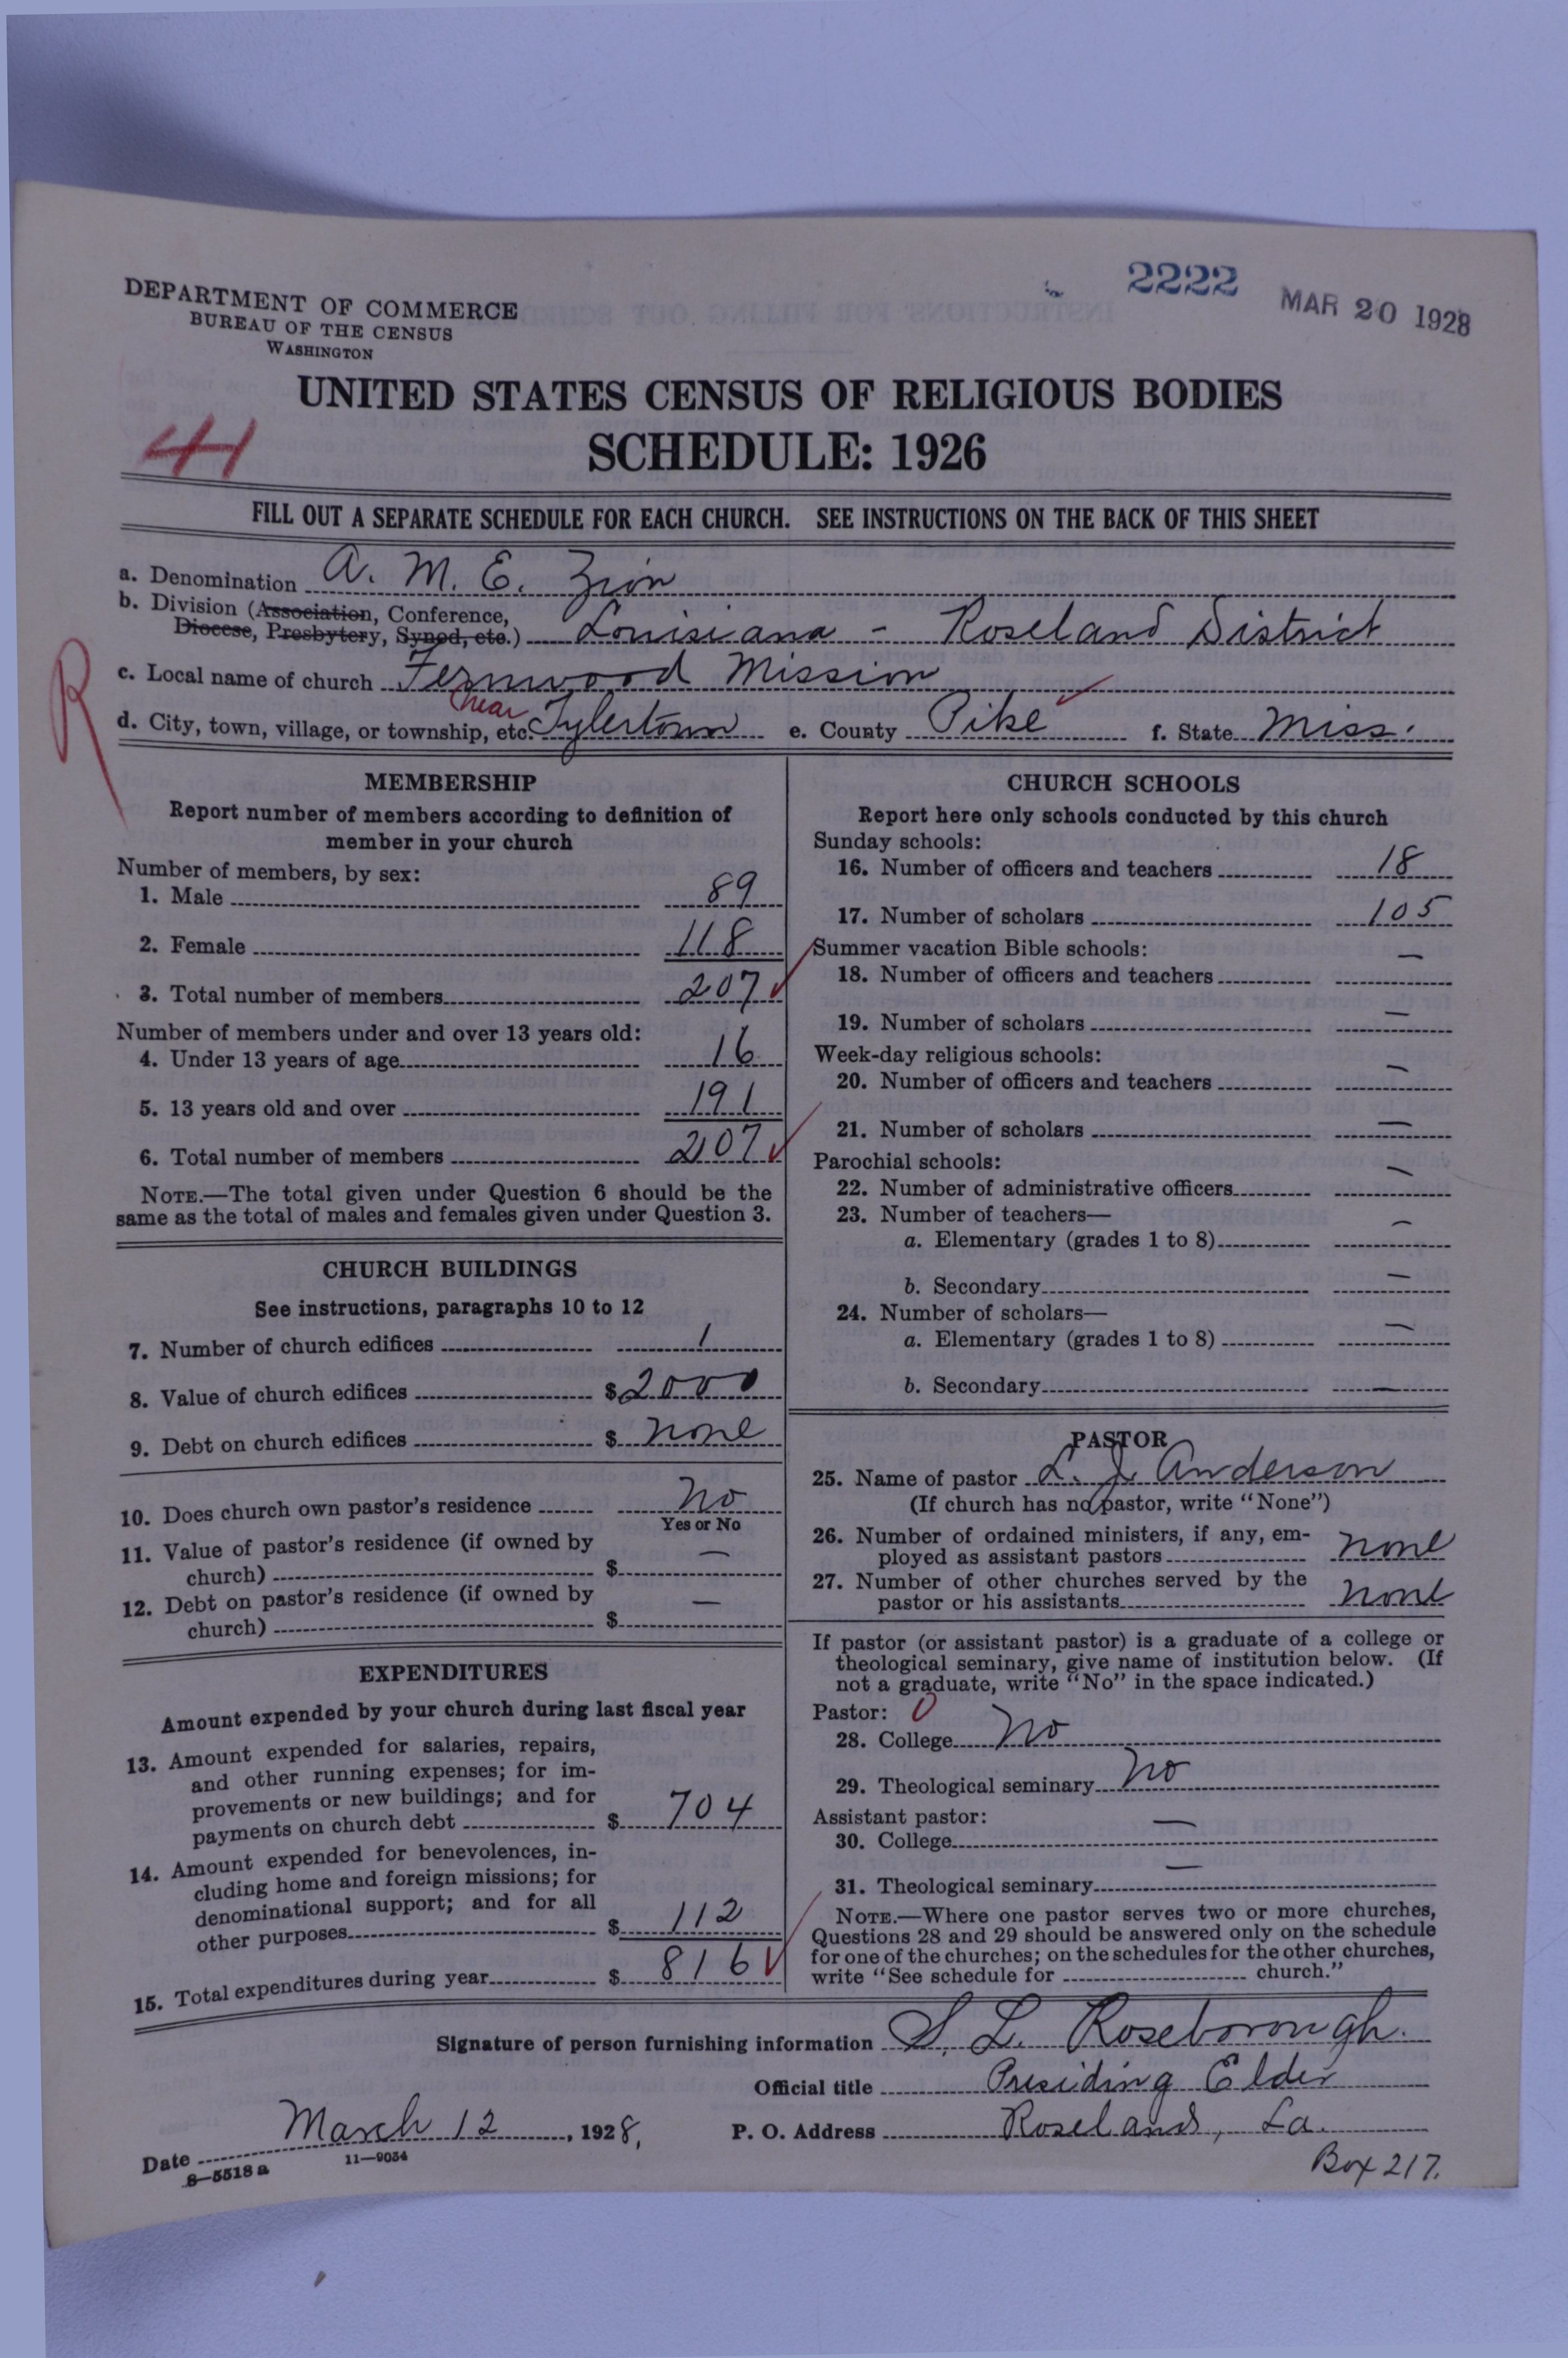 DEPARTMENT OF COMMERCE
BUREAU OF THE CENSUS
WASHINGTON
2222
MAR 20 1928
UNITED STATES CENSUS OF RELIGIOUS BODIES
SCHEDULE: 1926
FILL OUT A SEPARATE SCHEDULE FOR EACH CHURCH. SEE INSTRUCTIONS ON THE BACK OF THIS SHEET
a. Denomination A. M. E. Zion
b. Division (Association, Conference,
Diocese, Presbytery, Synod, etc.) Louisiana - Roseland District
R
c. Local name of church Fernwood Mission
near
d. City, town, village, or township, etc. Tylertown e. County Pike f. State Miss.
MEMBERSHIP
Report number of members according to definition of
member in your church
Number of members, by sex:
1. Male 89
2. Female 118
3. Total number of members 207
Number of members under and over 13 years old:
4. Under 13 years of age 16
5. 13 years old and over 191
6. Total number of members 207
NOTE.—The total given under Question 6 should be the
same as the total of males and females given under Question 3.
CHURCH BUILDINGS
See instructions, paragraphs 10 to 12
7. Number of church edifices 1
8. Value of church edifices $2000
9. Debt on church edifices $ none
10. Does church own pastor's residence No
Yes or No
11. Value of pastor's residence (if owned by
church) $ —
12. Debt on pastor's residence (if owned by
church) $ —
EXPENDITURES
Amount expended by your church during last fiscal year
13. Amount expended for salaries, repairs,
and other running expenses; for im-
provements or new buildings; and for
payments on church debt $ 704
14. Amount expended for benevolences, in-
cluding home and foreign missions; for
denominational support; and for all
other purposes $ 112
15. Total expenditures during year $ 816
CHURCH SCHOOLS
Report here only schools conducted by this church
Sunday schools:
16. Number of officers and teachers 18
17. Number of scholars 105
Summer vacation Bible schools:
18. Number of officers and teachers —
19. Number of scholars —
Week-day religious schools:
20. Number of officers and teachers —
21. Number of scholars —
Parochial schools:
22. Number of administrative officers —
23. Number of teachers—
a. Elementary (grades 1 to 8) —
b. Secondary —
24. Number of scholars—
a. Elementary (grades 1 to 8) —
b. Secondary —
PASTOR
25. Name of pastor L. J. Anderson
(If church has no pastor, write "None")
26. Number of ordained ministers, if any, em-
ployed as assistant pastors none
27. Number of other churches served by the
pastor or his assistants none
If pastor (or assistant pastor) is a graduate of a college or
theological seminary, give name of institution below. (If
not a graduate, write "No" in the space indicated.)
Pastor: 0
28. College No
29. Theological seminary No
Assistant pastor:
30. College —
31. Theological seminary —
NOTE.—Where one pastor serves two or more churches,
Questions 28 and 29 should be answered only on the schedule
for one of the churches; on the schedules for the other churches,
write "See schedule for church."
Signature of person furnishing information S. L. Roseborough.
Official title Presiding Elder
Date March 12, 1928, P. O. Address Roseland, La.
8—5518 a 11—9034
Box 217.